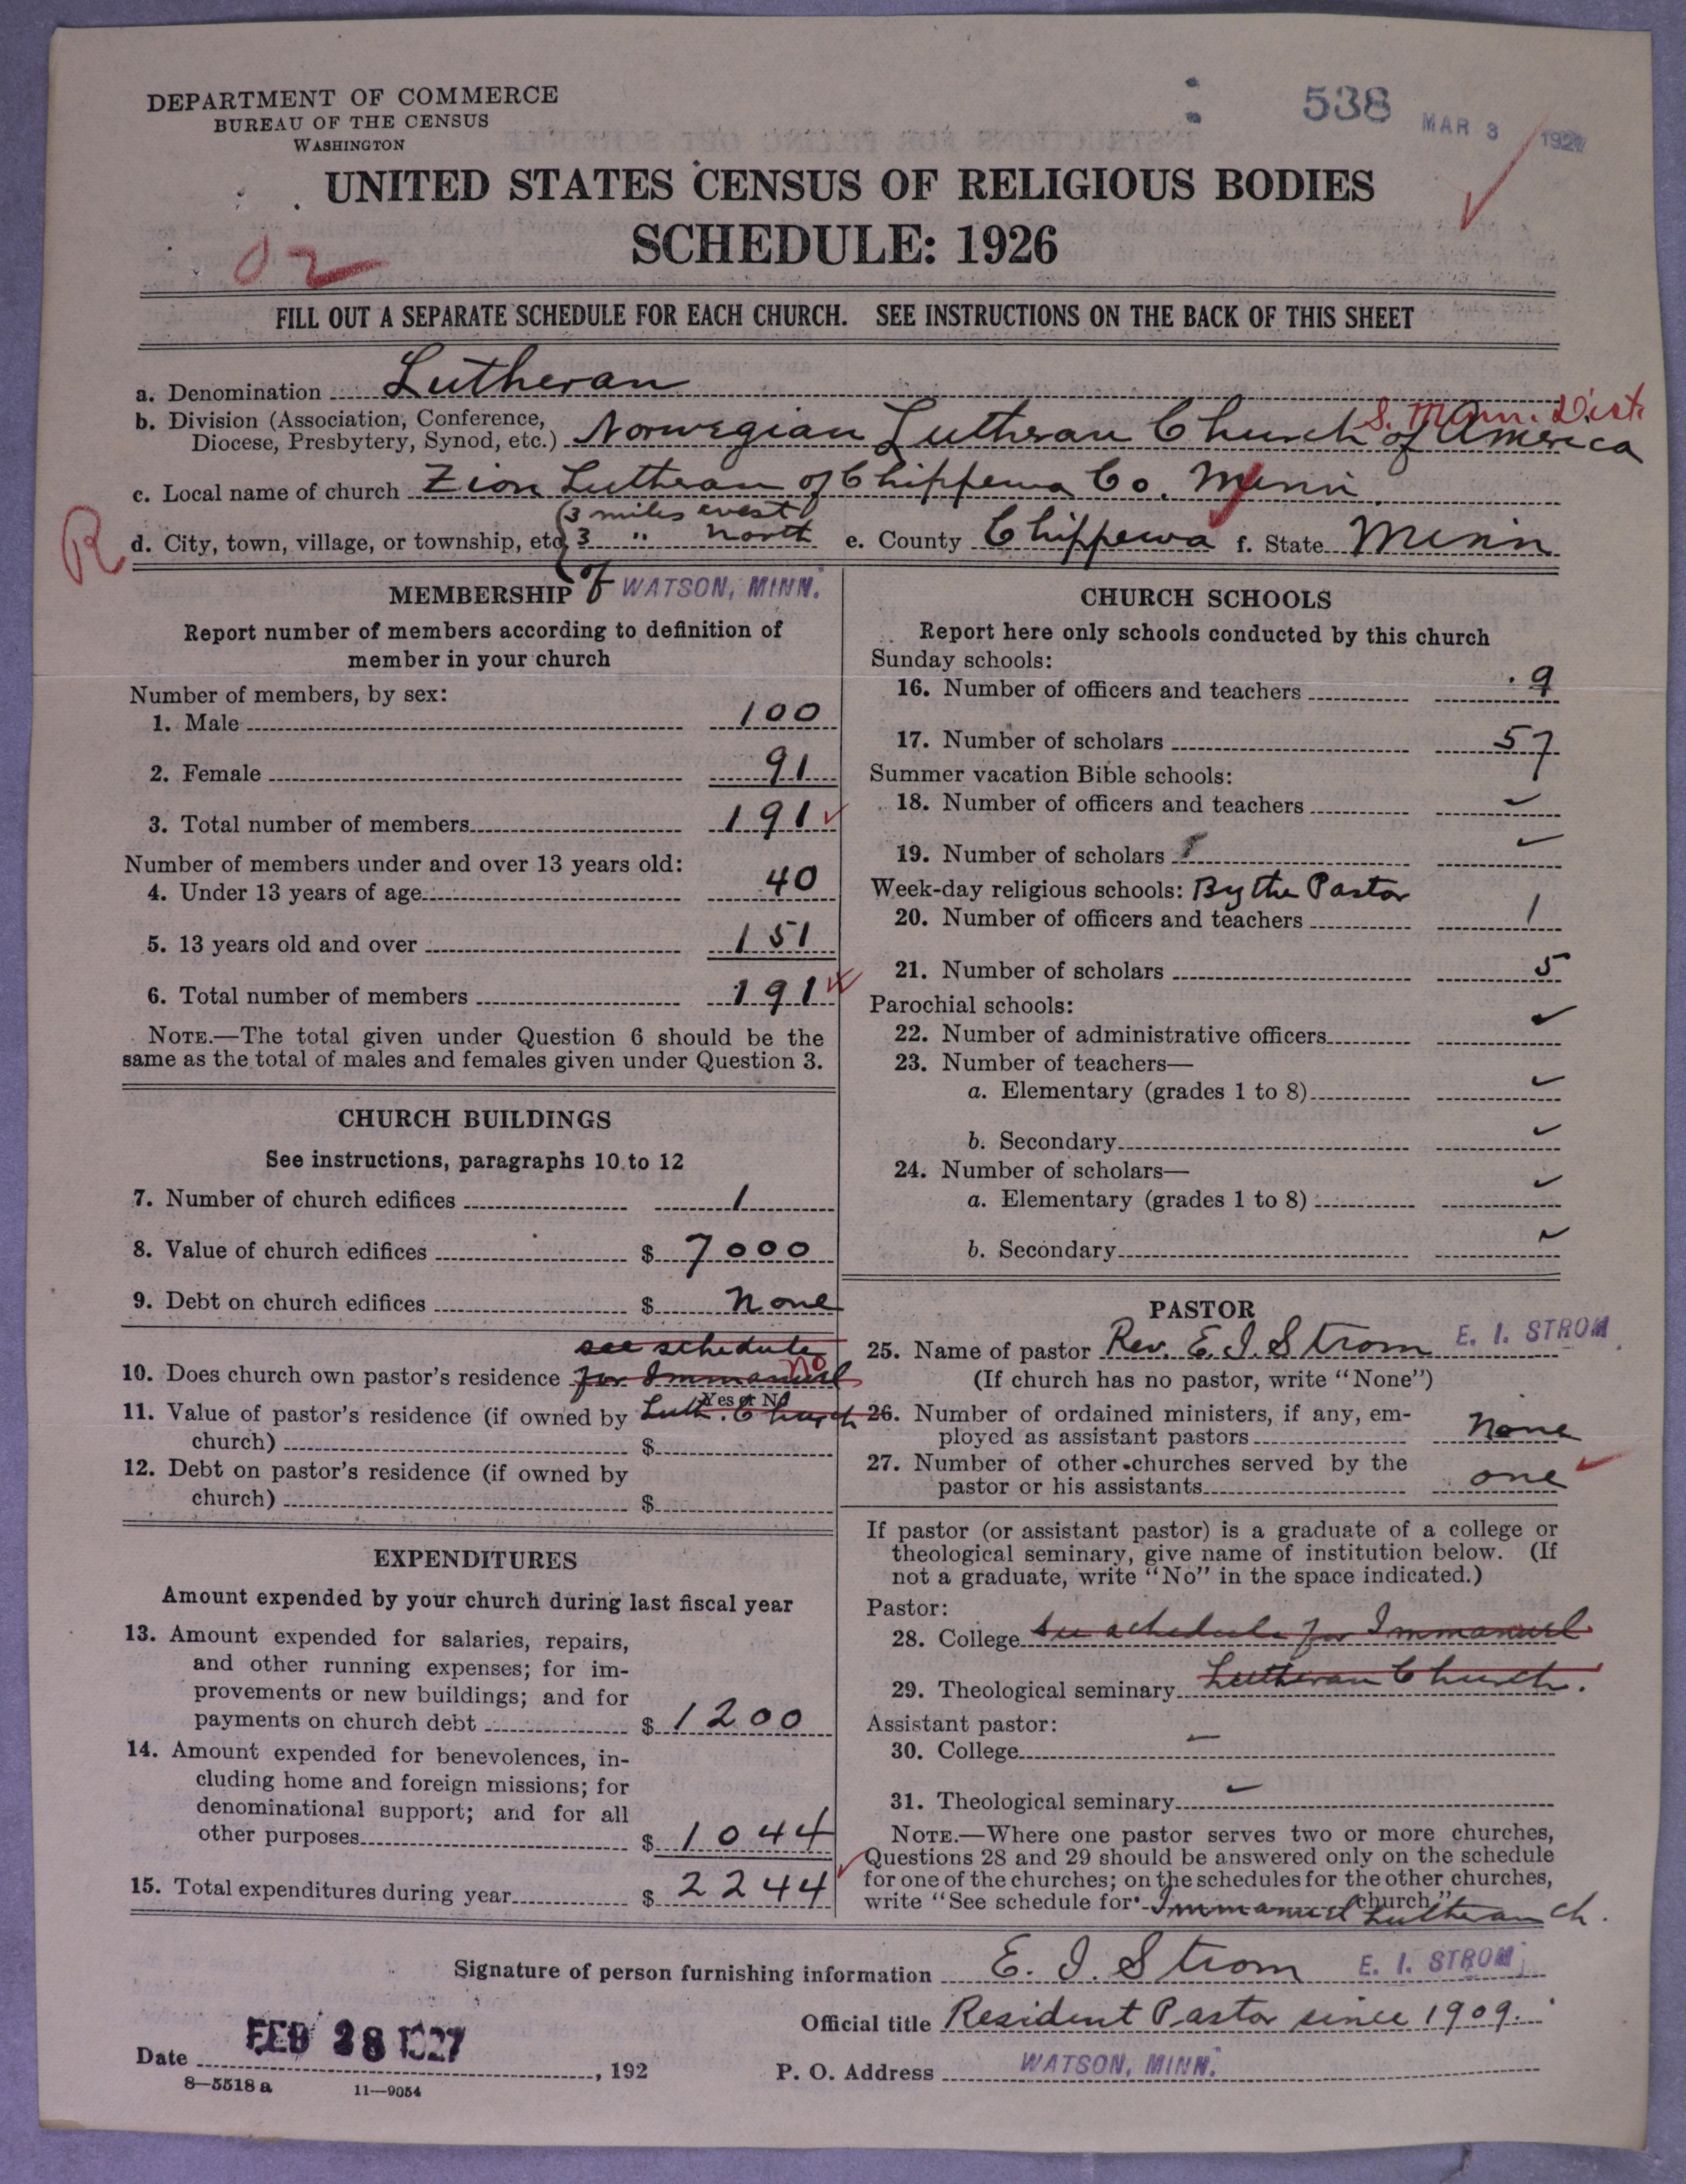 DEPARTMENT OF COMMERCE
BUREAU OF THE CENSUS
WASHINGTON
538
MAR 3 1927
UNITED STATES CENSUS OF RELIGIOUS BODIES
SCHEDULE: 1926
02
FILL OUT A SEPARATE SCHEDULE FOR EACH CHURCH. SEE INSTRUCTIONS ON THE BACK OF THIS SHEET
a. Denomination Lutheran
S. Minn. Dist.
b. Division (Association, Conference,
Diocese, Presbytery, Synod, etc.) Norwegian Lutheran Church of America
c. Local name of church Zion Lutheran of Chippewa Co. Minn
(3 miles west
R
d. City, town, village, or township, etc. 3 " north e. County Chippewa f. State Minn
of WATSON, MINN.
MEMBERSHIP
Report number of members according to definition of
member in your church
Number of members, by sex:
1. Male 100
2. Female 91
3. Total number of members 191
Number of members under and over 13 years old:
4. Under 13 years of age 40
5. 13 years old and over 151
6. Total number of members 191
NOTE.—The total given under Question 6 should be the
same as the total of males and females given under Question 3.
CHURCH BUILDINGS
See instructions, paragraphs 10 to 12
7. Number of church edifices 1
8. Value of church edifices $ 7000
9. Debt on church edifices $ None
see schedule
10. Does church own pastor's residence for Immanuel No
Yes or No
11. Value of pastor's residence (if owned by Luth. Church
church) $
12. Debt on pastor's residence (if owned by
church) $
EXPENDITURES
Amount expended by your church during last fiscal year
13. Amount expended for salaries, repairs,
and other running expenses; for im-
provements or new buildings; and for
payments on church debt $ 1200
14. Amount expended for benevolences, in-
cluding home and foreign missions; for
denominational support; and for all
other purposes $ 1044
15. Total expenditures during year $ 2244
CHURCH SCHOOLS
Report here only schools conducted by this church
Sunday schools:
16. Number of officers and teachers 9
17. Number of scholars 57
Summer vacation Bible schools:
18. Number of officers and teachers
19. Number of scholars
Week-day religious schools: By the Pastor
20. Number of officers and teachers 1
21. Number of scholars 5
Parochial schools:
22. Number of administrative officers
23. Number of teachers—
a. Elementary (grades 1 to 8)
b. Secondary
24. Number of scholars—
a. Elementary (grades 1 to 8)
b. Secondary
PASTOR
25. Name of pastor Rev. E. I. Strom E. I. STROM
(If church has no pastor, write "None")
26. Number of ordained ministers, if any, em-
ployed as assistant pastors None
27. Number of other churches served by the
pastor or his assistants one
If pastor (or assistant pastor) is a graduate of a college or
theological seminary, give name of institution below. (If
not a graduate, write "No" in the space indicated.)
Pastor:
28. College See schedule for Immanuel
29. Theological seminary Lutheran Church.
Assistant pastor:
30. College
31. Theological seminary
NOTE.—Where one pastor serves two or more churches,
Questions 28 and 29 should be answered only on the schedule
for one of the churches; on the schedules for the other churches,
write "See schedule for Immanuel Lutheran Ch. church."
Signature of person furnishing information E. I. Strom E. I. STROM
Official title Resident Pastor since 1909.
Date FEB 28 1927, 192
P. O. Address WATSON, MINN.
8—5518 a 11—9054